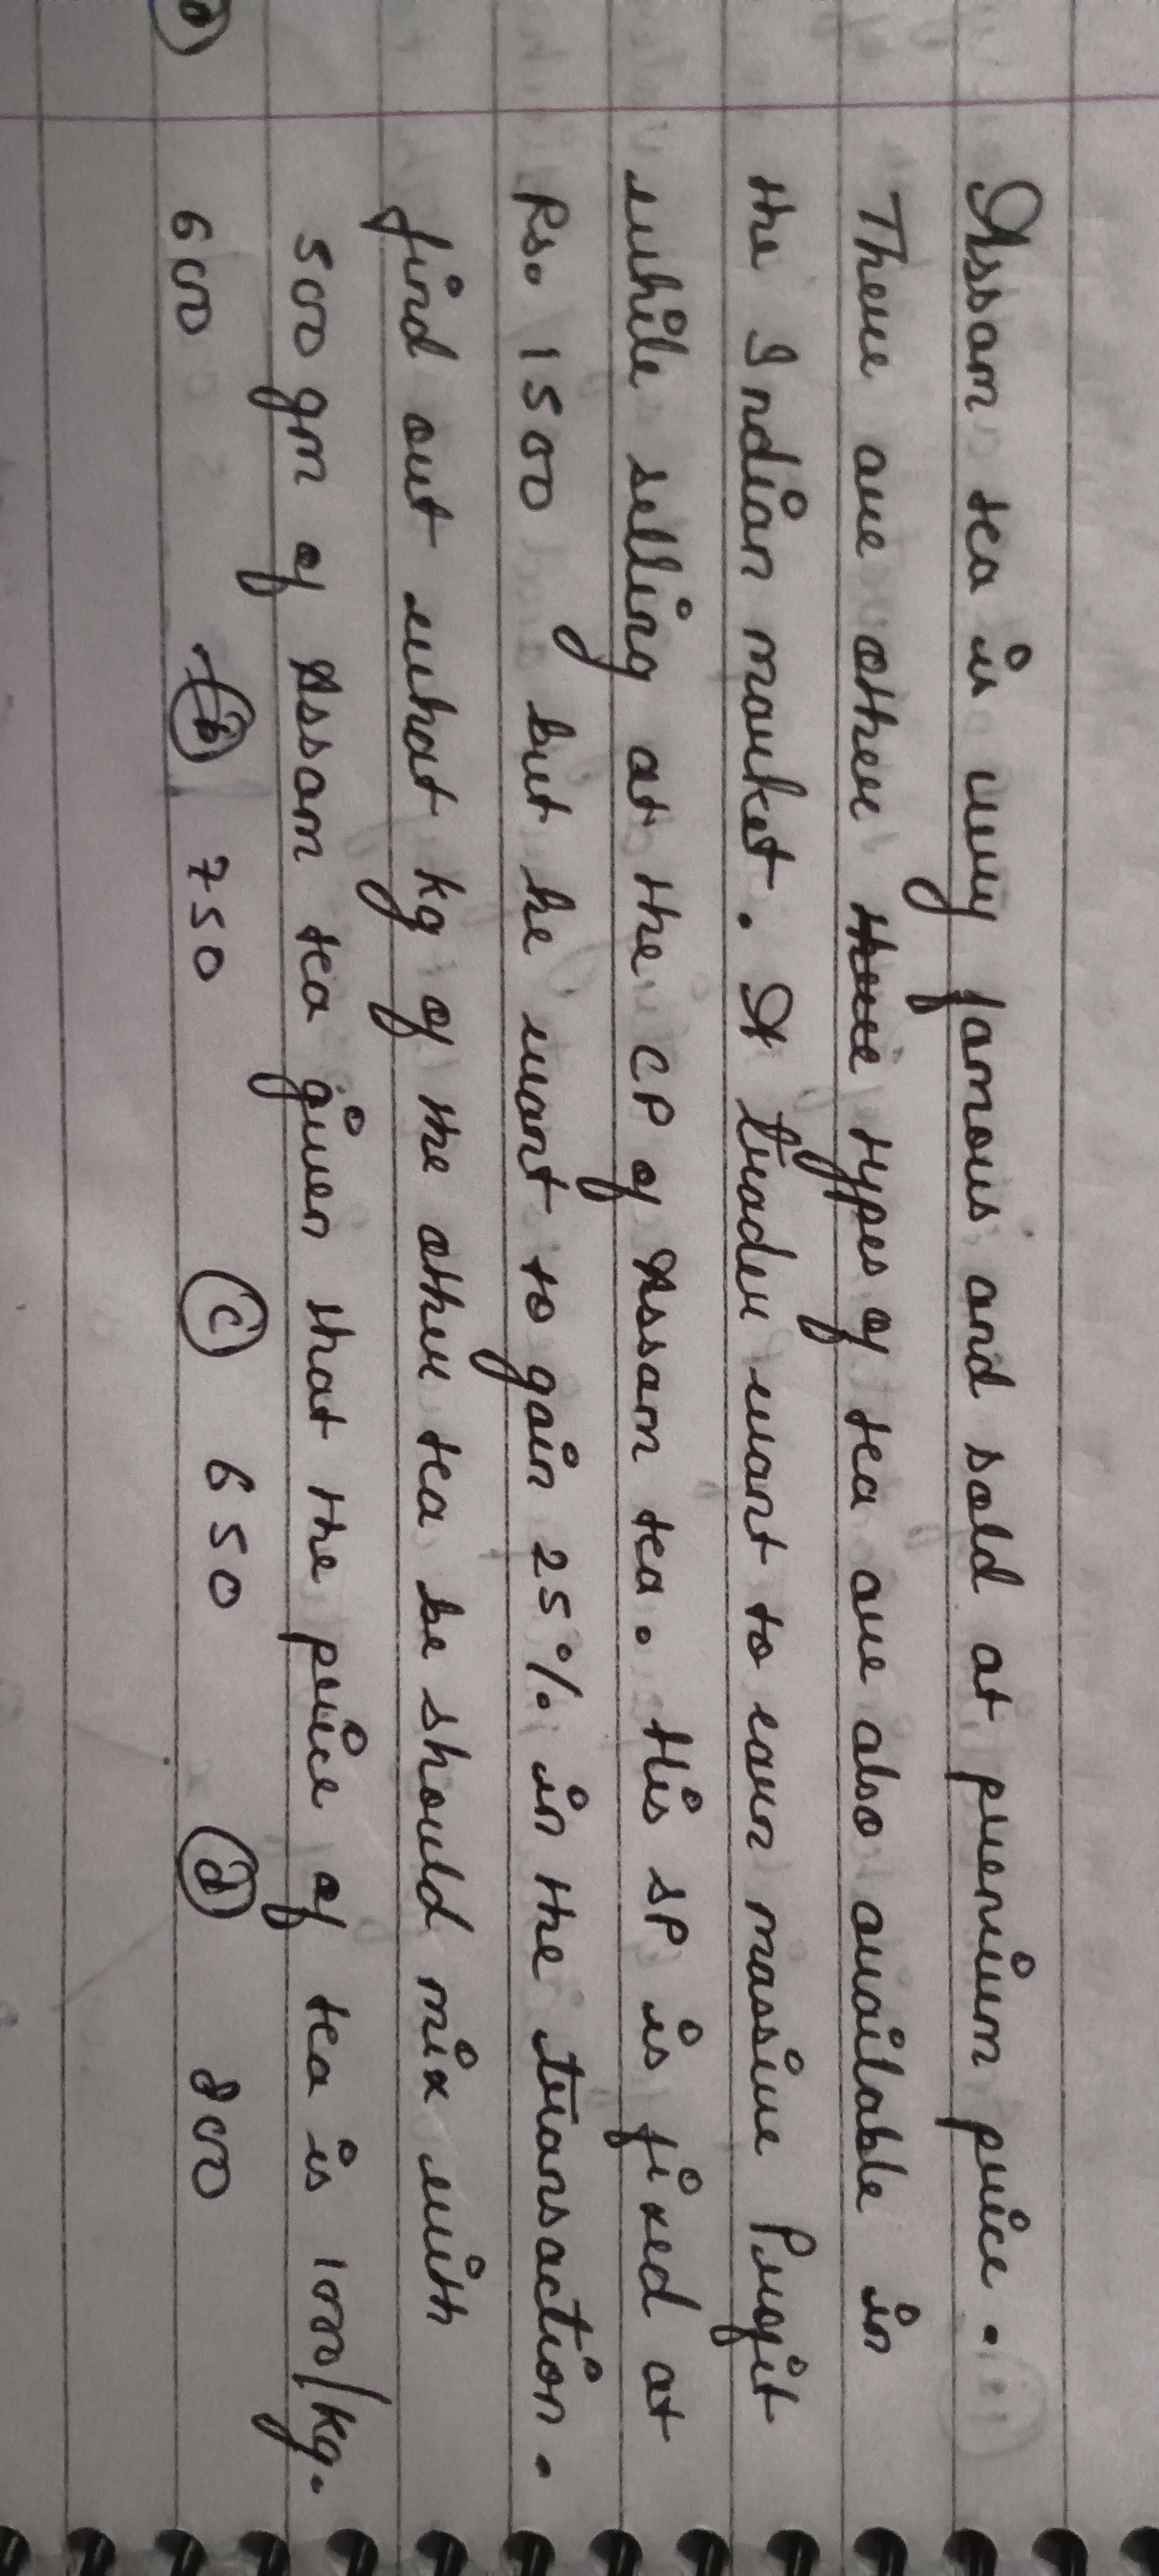 Assam tea is very famous and sold at premium price.
There are other types of tea are also available in
the Indian market. A trader want to earn massive Profit
while selling at the CP of Assam tea. His SP is fixed at
Rs. 1500 but he want to gain 25% in the transaction.
find out what kg of the other tea be should mix with
500 gm of Assam tea given that the price of tea is 1000/kg.
(a) 600 (b) 750 (c) 650 (d) 800